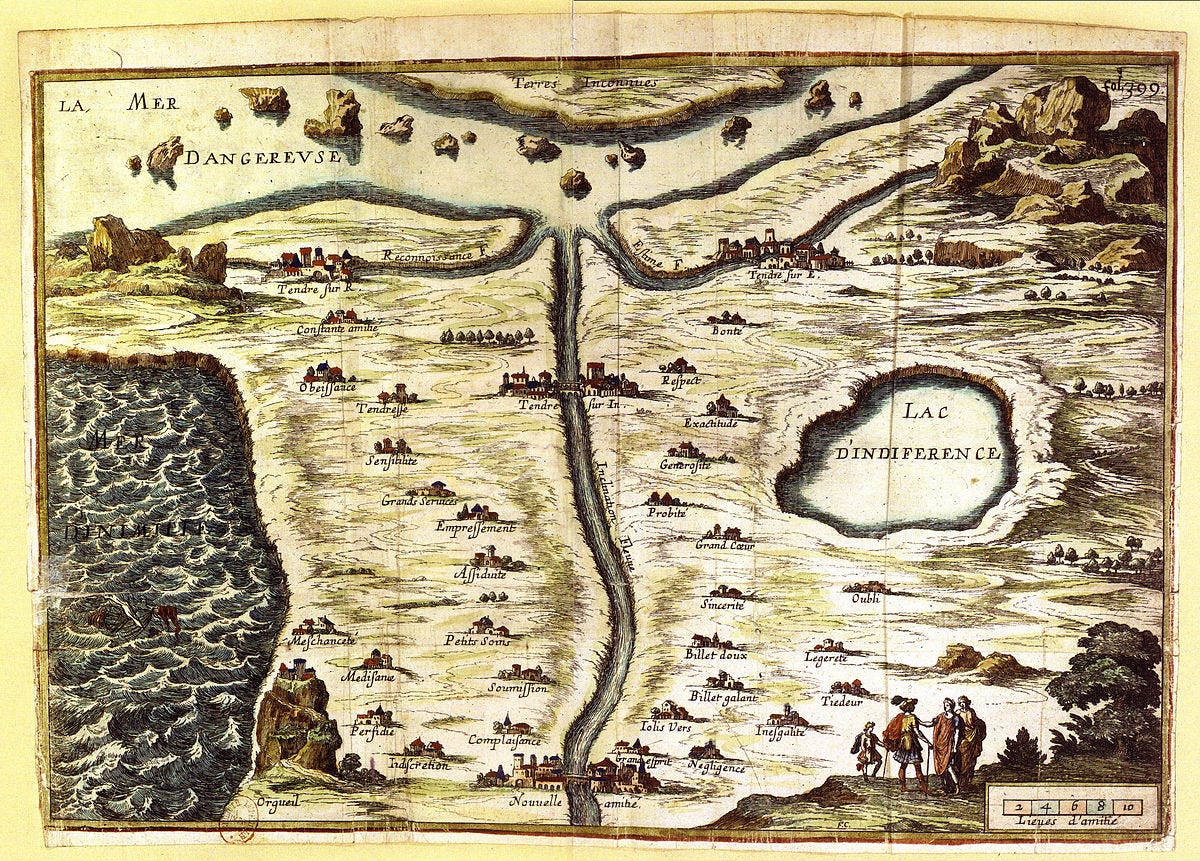 Terres Inconnues
fol. 399.
LA MER
DANGEREVSE
Reconnoissance F
Estime F
Tendre sur R.
Tendre sur E.
Constante amitie
Bonte
Obeissance
Respect
Tendresse
Tendre sur In
Exactitude
LAC
D'INDIFERENCE
MER
Sensibilite
Generosite
Inclination Fleuve
Grands Services
Probite
Empressement
Grand Cœur
Assiduite
Sincerite
Oubli
Meschancete
Petits Soins
Billet doux
Legerete
Medisance
Soumission
Billet galant
Tiedeur
Perfidie
Complaisance
Iolis Vers
Inesgalite
Indiscretion
Grand esprit
Negligence
Orgueil
Nouvelle amitie.
2 4 6 8 10
Lieues d'amitie